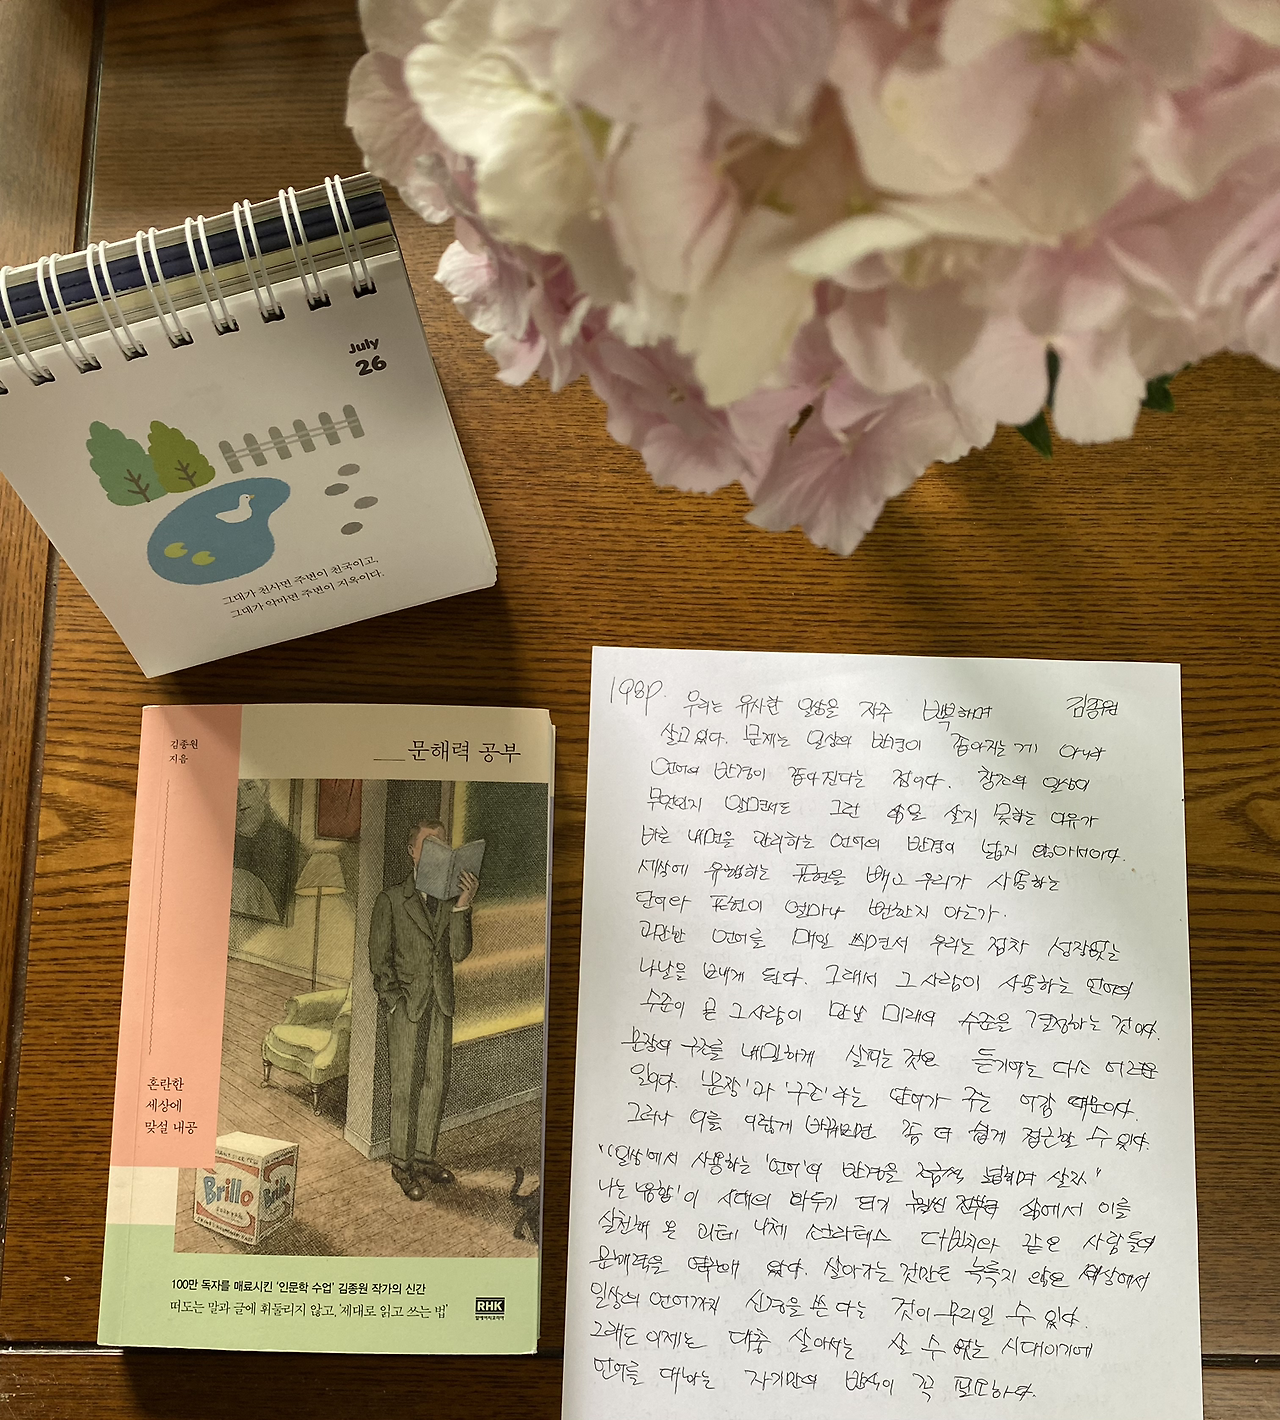 July
26
그대가 천사면 주변이 천국이고,
그대가 악마면 주변이 지옥이다.
김종원
지음
문해력 공부
혼란한
세상에
맞설 내공
Brillo
Brillo
100만 독자를 매료시킨 '인문학 수업' 김종원 작가의 신간
떠도는 말과 글에 휘둘리지 않고, '제대로 읽고 쓰는 법'
RHK
알에이치코리아
198p. 우리는 유사한 일상을 자주 반복하며 김종원
살고 있다. 문제는 일상의 반경이 좁아지는 게 아니라
언어의 반경이 좁아진다는 점이다. 창조의 일상이
무엇인지 알면서도 그런 삶을 살지 못하는 이유가
바로 내면을 관리하는 언어의 반경이 넓지 않아서이다.
세상에 유행하는 표현을 빼고 우리가 사용하는
단어와 표현이 얼마나 빈한지 아는가.
빈한 언어를 매일 쓰면서 우리는 점차 성장없는
나날을 보내게 된다. 그래서 그 사람이 사용하는 언어의
수준이 곧 그 사람이 만날 미래의 수준을 결정하는 것이다.
문장의 구조를 내밀하게 살피는 것은 듣기에는 다소 어려운
일이다. '문장'과 '구조'라는 단어가 주는 어감 때문이다.
그러나 이를 이렇게 바꿔보면 좀 더 쉽게 접근할 수 있다.
"'일상'에서 사용하는 '언어'의 반경을 조금씩 넓히며 살자."
나는 '융합'이 시대의 화두가 되기 훨씬 전부터 삶에서 이를
실천해 온 괴테, 니체, 소크라테스, 다빈치와 같은 사람들의
문해력을 연구해 왔다. 살아가는 것만도 녹록지 않은 세상에서
일상의 언어까지 신경을 쓴다는 것이 무리일 수 있다.
그래도 이제는 대충 살아서는 살 수 없는 시대이기에
언어를 대하는 자기만의 방식이 꼭 필요하다.